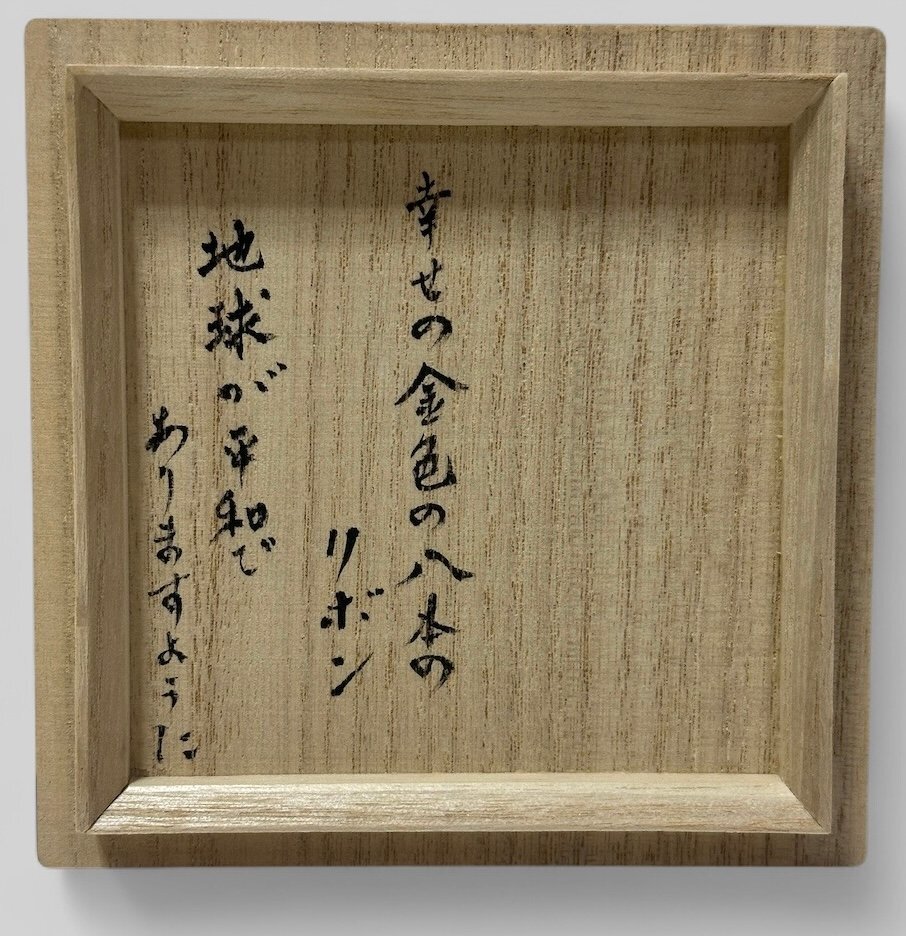 幸せの金色の八本の
リボン
地球が平和で
ありますように